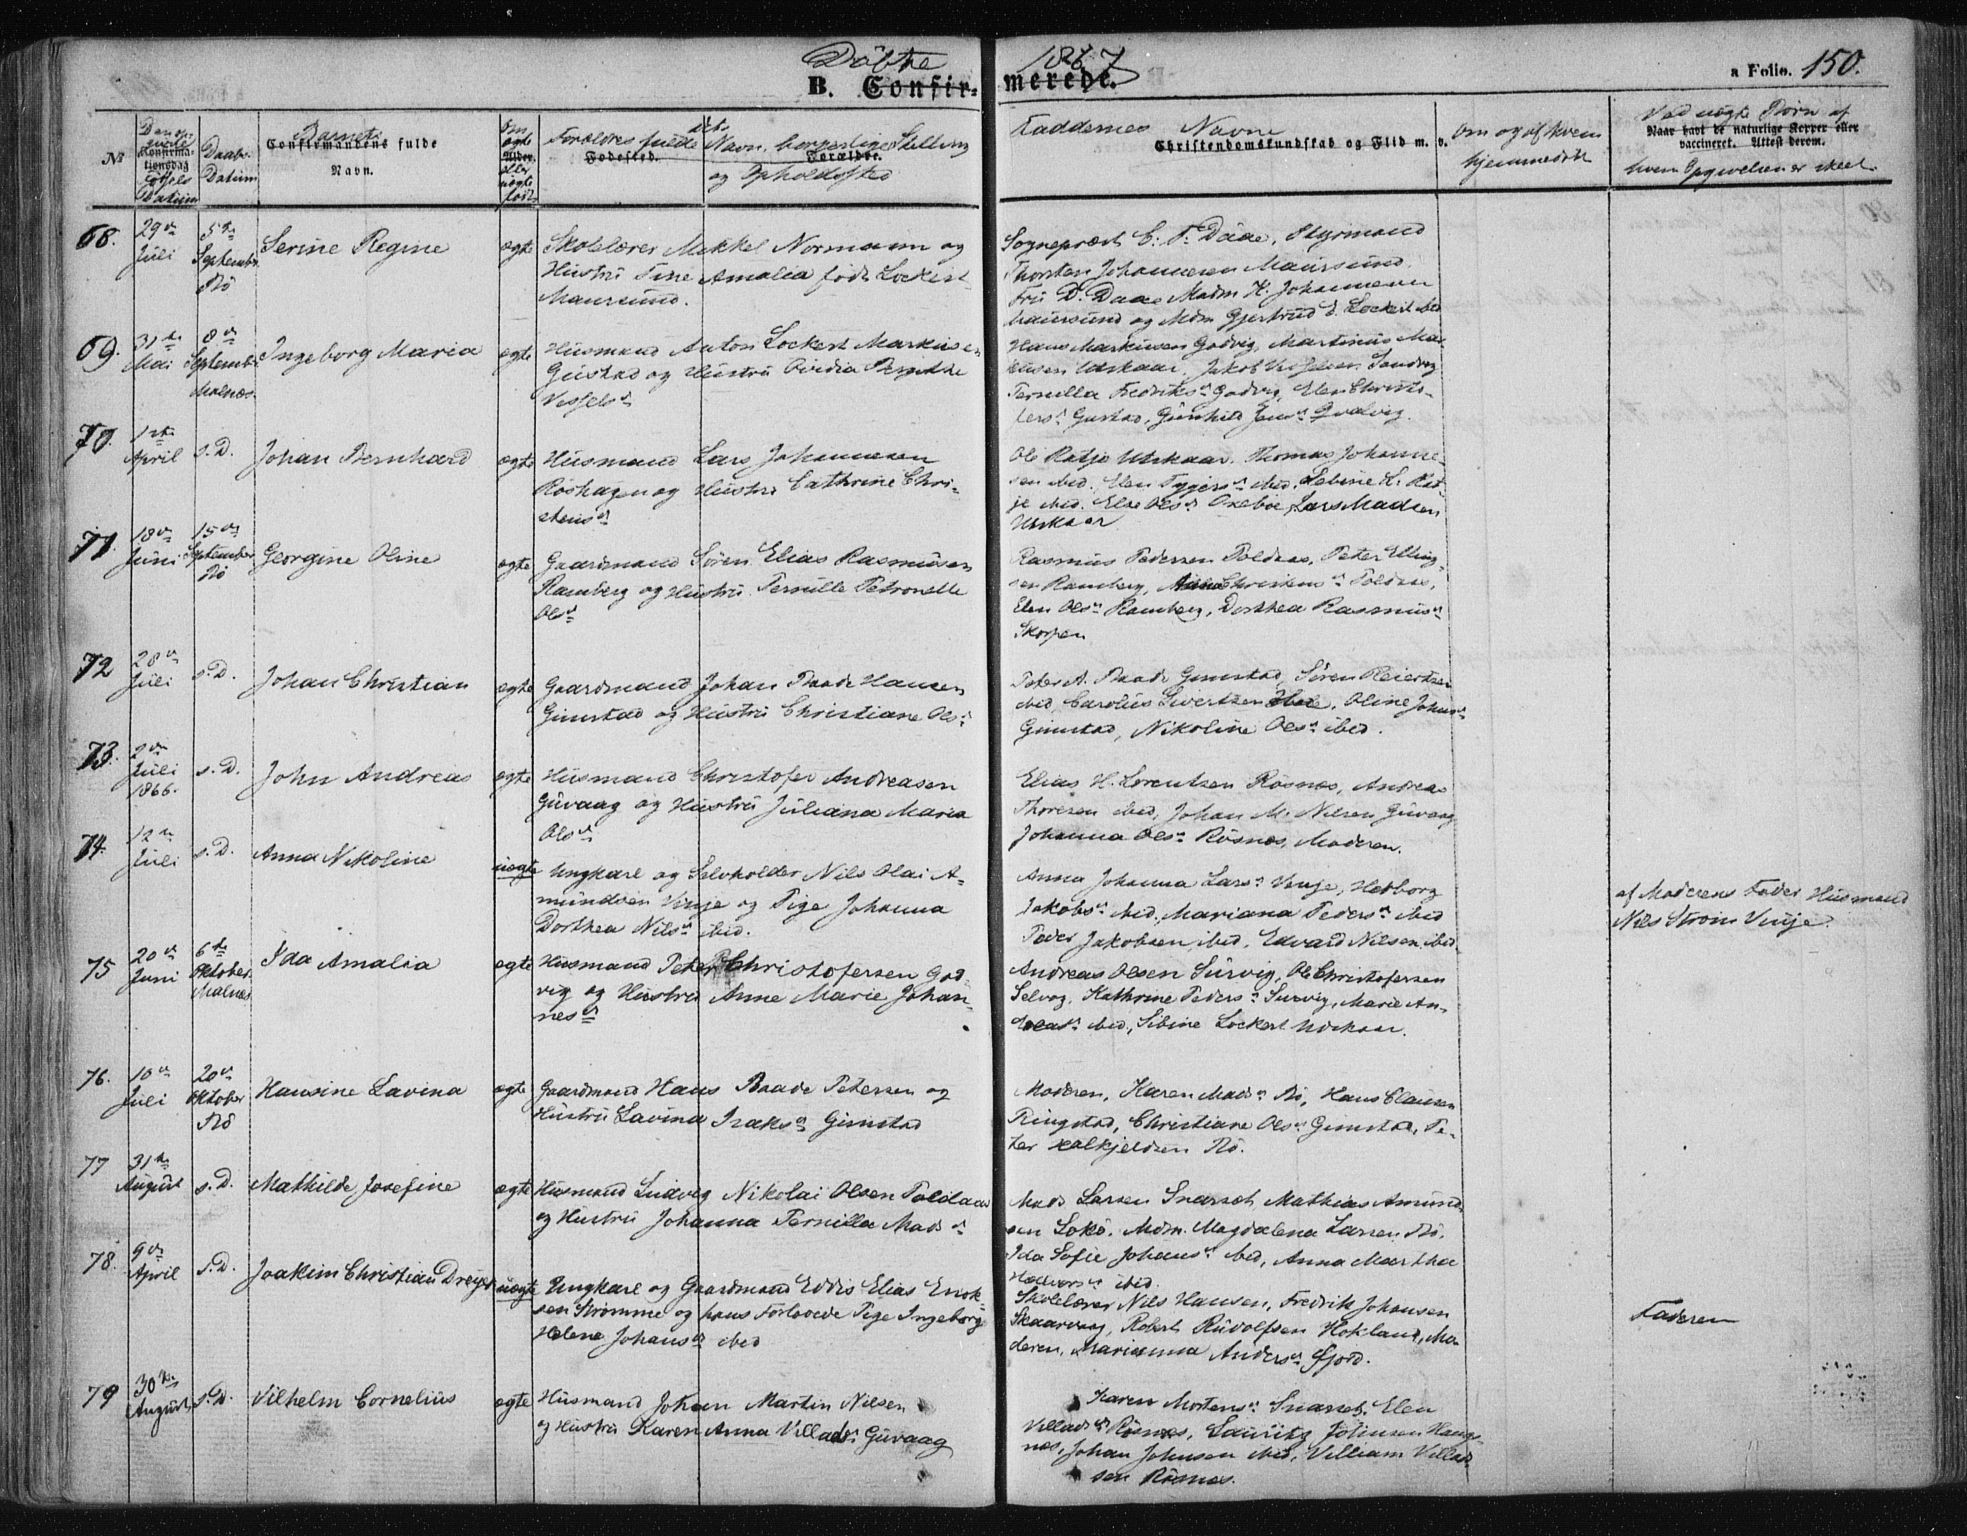 Döbte 1867
B. Confirmerede.
a Folio. 150.
№
Den op-
givete
Confirma-
tionsdag
Fødsels
Datum
Daabs-
Datum
Barnets
Confirmandens fulde
Navn.
Om
ægte
Alder.
eller
uægte
født.
Forældres fulde Navn, borgerlige Stilling
Fødested. Forældre.
og Opholdssted
Faddernes Navne
Christendomskundskab og Flid m. v.
Om og af hvem
hjemmedøbt
Ved uægte Börn af
Naar havt de naturlige Kopper eller
vaccineret. Attest derom.
hvem Opgivelsen er skeet.
68.
29de
Juli
5te
September
Bö
Serine Regine
ægte
Skolelærer Mikkel Normann og
Hustru Tine Amalia født Lockert
Maursund.
Sognepræst C. T. Daae, Styrmand
Thorsten Johannesen Maursund.
Fru D. Daae Madm H. Johannesen
Maursund og Mdm Gjertrud E. Lockert ibid
69.
31te
Mai
8de
September
Malnæs.
Ingeborg Maria
ægte
Husmand Anton Lockert Markusen
Gustad og Hustru Ovidia Pernille
Vessels D.
Hans Markusen Godvig, Martinus Mar-
kusen Utskaar, Jakob Sandvig
Pernilla Fredriks D. Godvig, Elen Christo-
fers D. Gustad, Gunhild Jens D. Qvalvig.
70.
1ste
April
s. D.
Johan Bernhard
ægte
Husmand Lars Johannesen
Röshagen og Hustru Cathrine Chri-
stens D.
Ole Ratje Utskaar. Thomas Johanne-
sen ibid. Elen Tygers D. ibid. Sebine K. Rat-
je ibid. Else Ols D. Oxebøe, Lars Madsen
Utskaar
71.
18de
Juni
15de
September
Bö
Georgine Oline
ægte
Gaardmand Sören Elias Rasmusen
Ramberg og Hustru Pernille Petronelle
Ols D.
Rasmus Pedersen Toldaas, Peter Elling-
sen Ramberg, Anna Christens D. Toldaas,
Elen Ols D. Ramberg, Dorthea Rasmus D.
Skorpen
72
28de
Juli
s. D.
Johan Christian
ægte
Gaardmand Johan Baade Hansen
Gimstad og Hustru Christiane Ols D.
Peter A. Baade Gimstad, Sören Reiertsen
ibid, Carolus Sivertsen, Oline Johans D.
Gimstad, Nikoline Ols D. ibid.
73.
2de
Juli
1866.
s. D.
John Andreas
ægte
Husmand Christofer Andreasen
Guvaag og Hustru Juliana Maria
Ols D.
Elias H. Lorentsen Rösnæs, Andreas
Thoresen ibid, Johan M. Nilsen Guvaag
Johanna Ols D. Rösnæs, Moderen.
74.
12te
Juli
s. D.
Anna Nikoline
uægte
Ungkarl og Selvholder Nils Olai A-
mundsen Vinje og Pige Johanna
Dorthea Nils D. ibid.
Anna Johanna Lars D. Vinje, Hedborg
Jakobs D. ibid, Mariana Peders D. ibid
Peder Jakobsen ibid, Edvard Nilsen ibid
af Moderens Fader Husmand
Nils Strøm Vinje.
75
20de
Juni
6te
Oktober.
Malnæs
Ida Amalia
ægte
Husmand Peter Christofersen God-
vig og Hustru Anne Marie Johan-
nes D.
Andreas Olsen Survig, Ole Christofersen
Selvog, Kathrine Peders D. Survig, Marie An-
dreas D. ibid, Sibine Lockert Utskaar.
76.
10de
Juli
20de
Oktober
Bö
Hansine Lavina
ægte
Gaardmand Hans Baade Petersen og
Hustru Lavina Isaks D. Gimstad
Moderen, Karen Mads D. Bö, Hans Clausen
Ringstad, Christiane Ols D. Gimstad, Pe-
ter Falkjeldsen Bö.
77
31te
August
s. D.
Mathilde Josefine
ægte
Husmand Ludvig Nikolai Olsen Toldaas
og Hustru Johanna Pernilla Mads D.
Mads Larsen Snarset, Mathias Amund-
sen Sokö. Mdm. Magdalena Larsen Bö.
Ida Sofie Johans D. ibid, Anna Martha
Halvors D. ibid.
78.
9de
April
s. D.
Joakim Christian Dreyer
uægte
Ungkarl og Gaardmand Eddis Elias Enok-
sen Strömme og hans Forlovede Pige Ingeborg
Helene Johans D. ibid
Skolelærer Nils Hansen, Fredrik Johansen
Skaarvaag, Robert Rudolfsen Hokland, Mo-
deren, Marianna Anders D. Fjord.
Faderen
79
30te
August
s. D.
Vilhelm Cornelius
ægte
Husmand Johan Martin Nilsen
og Hustru Karen Anna Villads D. Guvaag
Karen Mortens D. Snarset, Elen
Villads D. Rösnæs, Lauritz Johnsen Haugs-
næs, Johan Johnsen ibid, Villiam Villad-
sen Rösnæs.